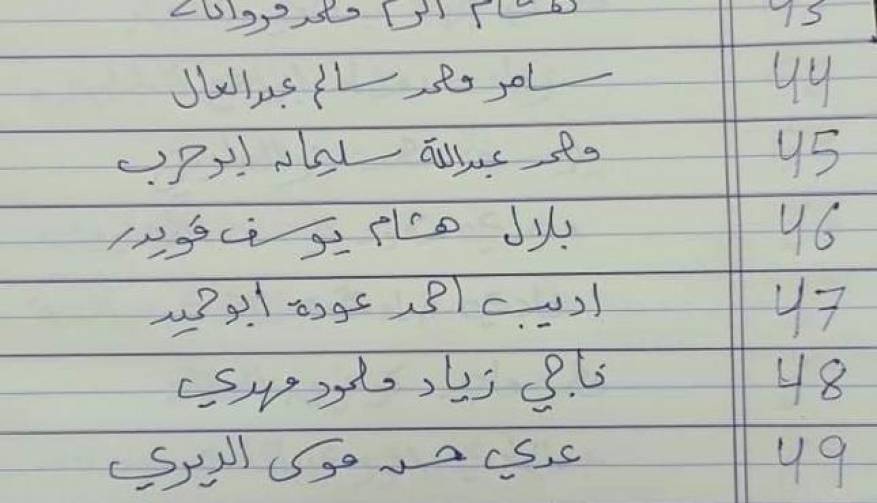 43 هشام اكرم محمد فروانة
44 سامر محمد سالم عبدالعال
45 محمد عبدالله سليمان ابوحرب
46 بلال هشام يوسف قويدر
47 اديب احمد عودة ابوحميد
48 ناجي زياد محمود مهدي
49 عدي حسن موسى الديري